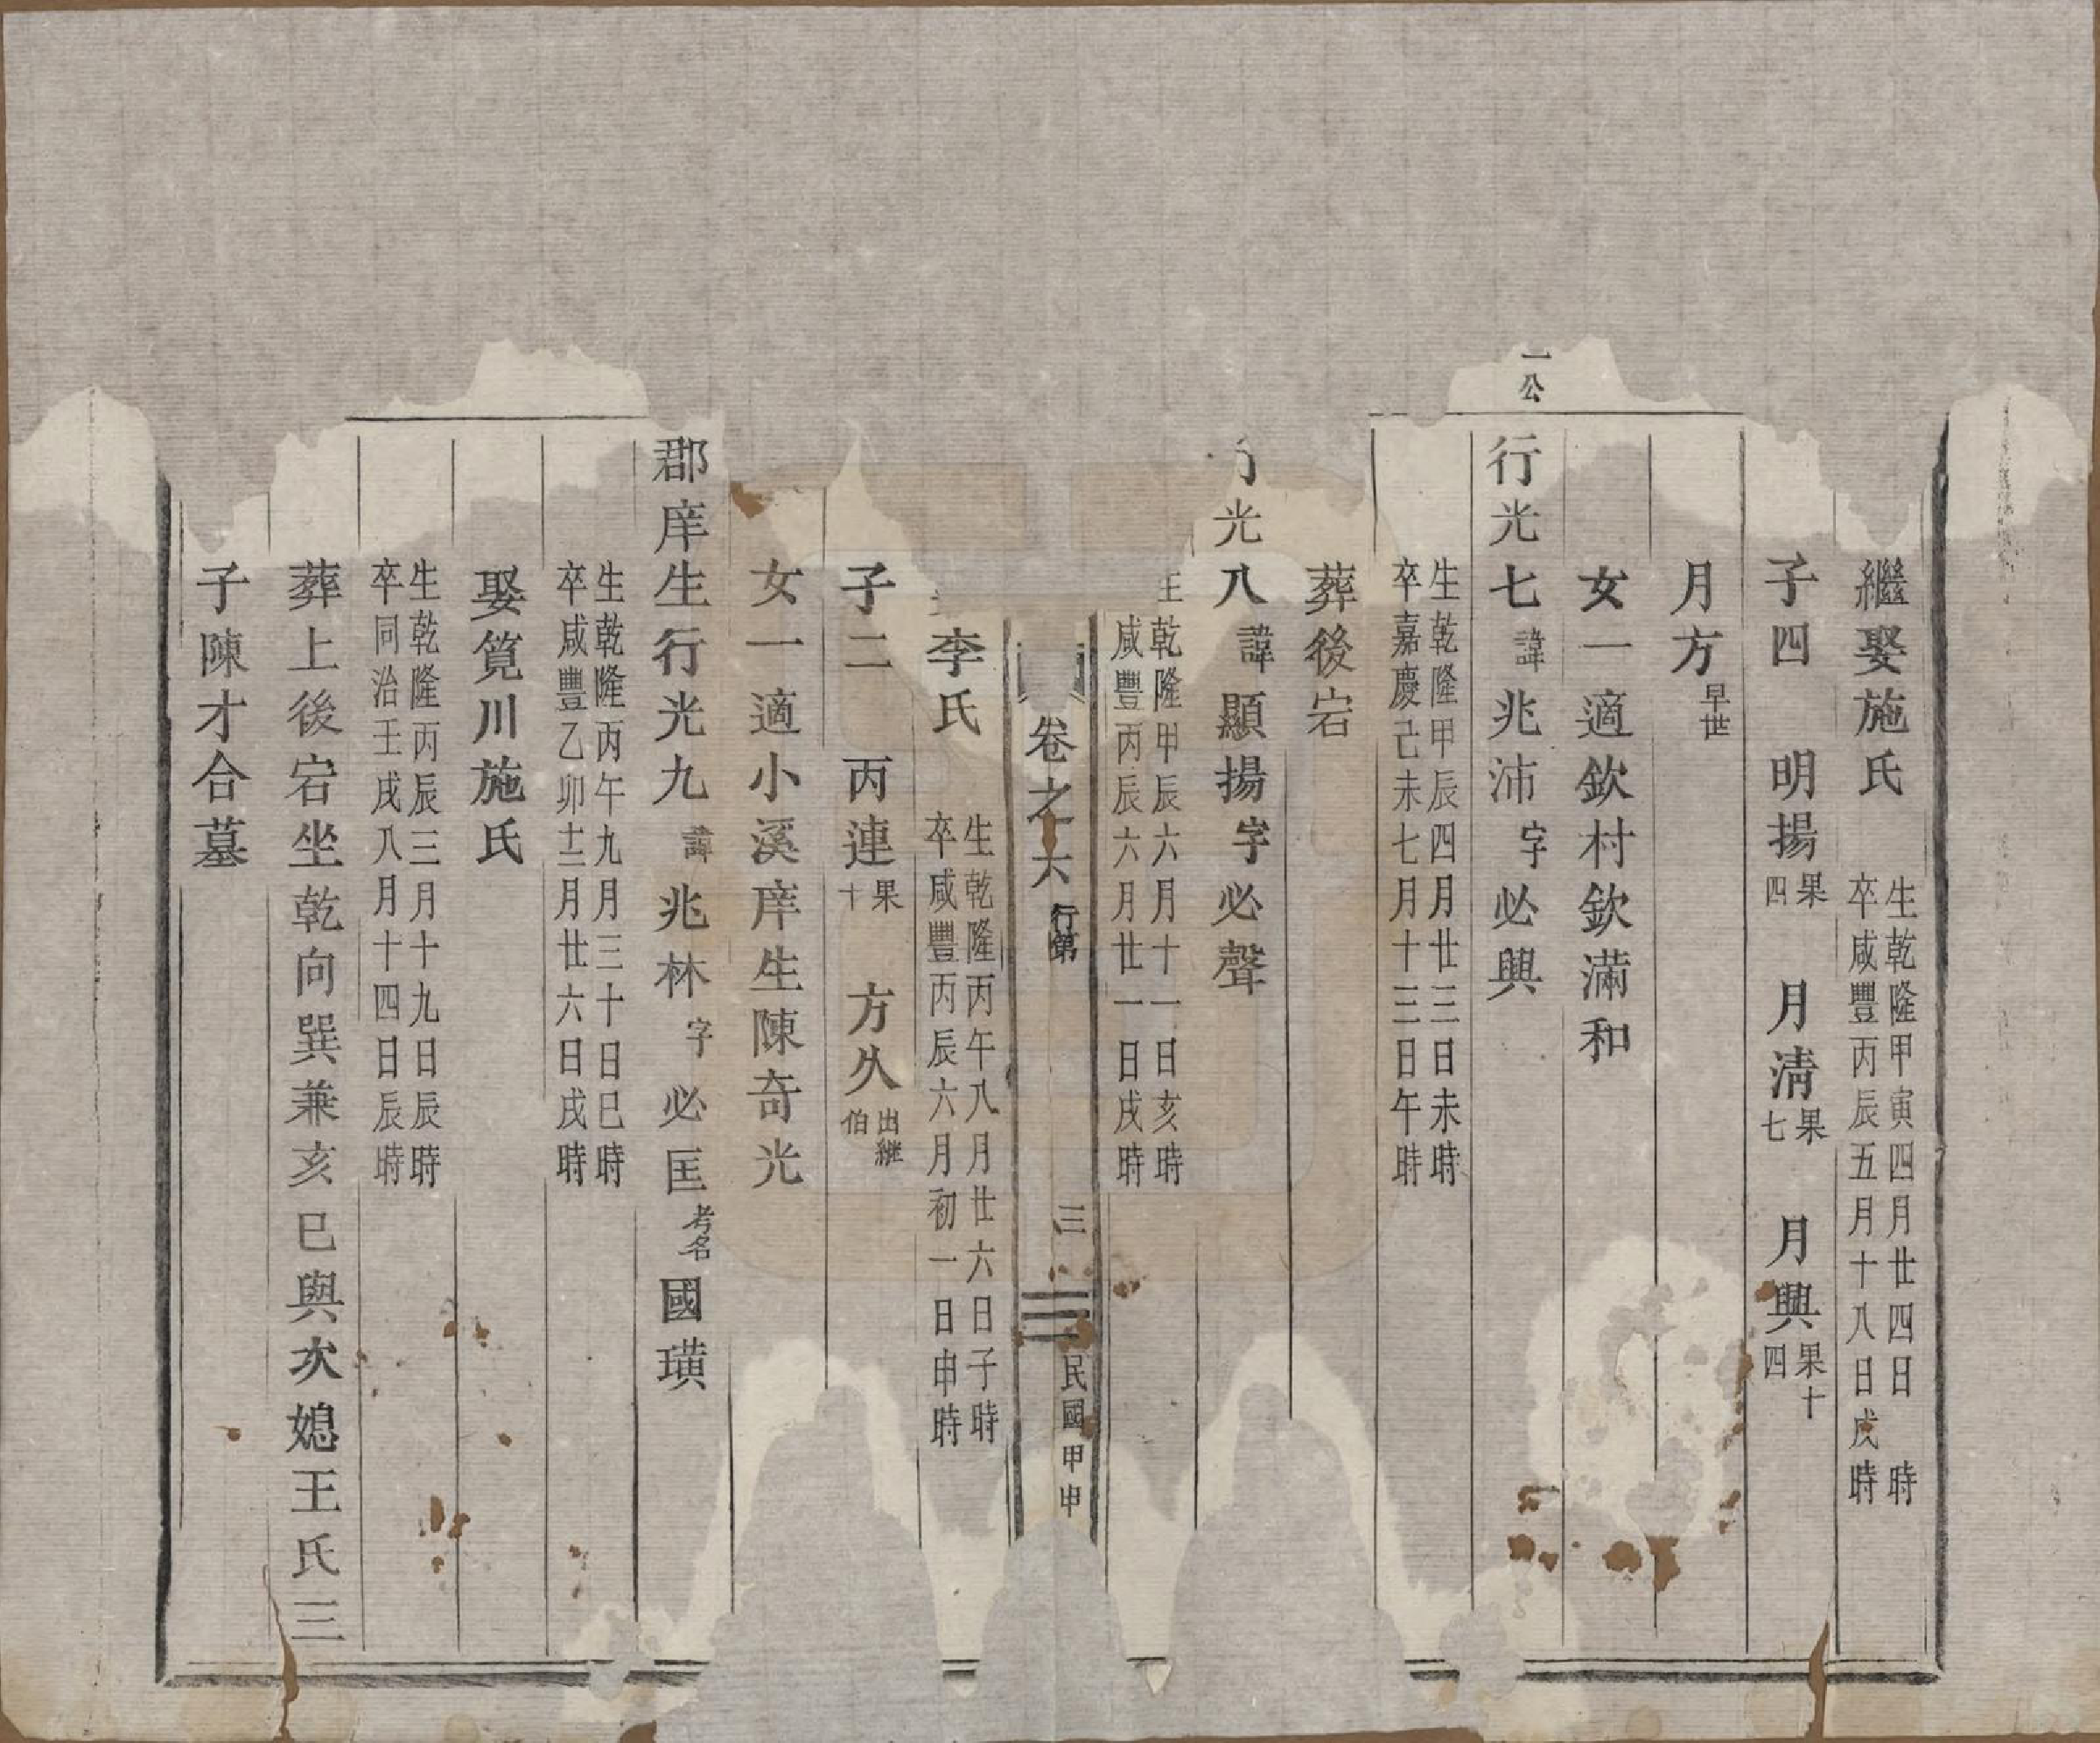 繼娶施氏
生乾隆甲寅四月廿四日　時
卒咸豐丙辰五月十八日戌時
子四　明揚果四　月清果七　月興果十四
月方早世
女一適欽村欽滿和
一公
行光七諱兆沛字必興
生乾隆甲辰四月廿三日未時
卒嘉慶己未七月十三日午時
葬後宕
光八諱顯揚字必聲
生乾隆甲辰六月十一日亥時
咸豐丙辰六月廿一日戌時
卷之六　行第　三　民國甲申
李氏
生乾隆丙午八月廿六日子時
卒咸豐丙辰六月初一日申時
子二　丙連果十　方久出繼伯
女一適小溪庠生陳奇光
郡庠生行光九諱兆林字必匡考名國璜
生乾隆丙午九月三十日巳時
卒咸豐乙卯十二月廿六日戌時
娶筧川施氏
生乾隆丙辰三月十九日辰時
卒同治壬戌八月十四日辰時
葬上後宕坐乾向巽兼亥巳與次媳王氏三
子陳才合墓